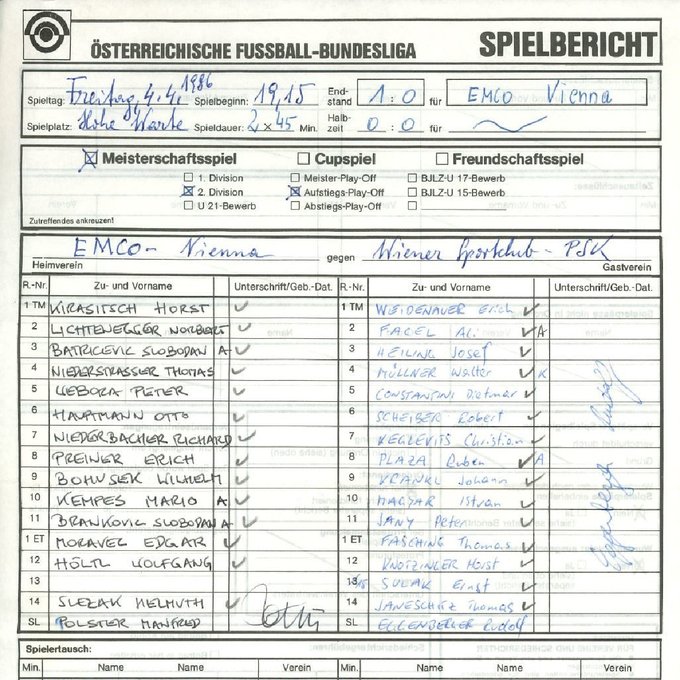 ÖSTERREICHISCHE FUSSBALL-BUNDESLIGA SPIELBERICHT
Spieltag: Freitag, 4.4.1986 Spielbeginn: 19,15 End-stand 1:0 für EMCO Vienna
Spielplatz: Hohe Warte Spieldauer: 2 x 45 Min. Halb-zeit 0:0 für
Meisterschaftsspiel Cupspiel Freundschaftsspiel
1. Division Meister-Play-Off BJLZ-U 17-Bewerb
2. Division Aufstiegs-Play-Off BJLZ-U 15-Bewerb
U 21-Bewerb Abstiegs-Play-Off
Zutreffendes ankreuzen!
EMCO - Vienna gegen Wiener Sportclub - PSK
Heimverein Gastverein
R.-Nr. Zu- und Vorname Unterschrift/Geb.-Dat. R.-Nr. Zu- und Vorname Unterschrift/Geb.-Dat.
1 TM KIRASITSCH HORST 1 TM WEIDENAUER Erich
2 LICHTENEGGER NORBERT 2 FAGEL Ali A
3 BATRICEVIC SLOBODAN A 3 HEILING Josef
4 NIEDERSTRASSER THOMAS 4 MÜLLNER Walter K
5 WEBORA PETER 5 CONSTANTINI Dietmar
6 HAUPTMANN OTTO 6 SCHEIBER Robert
7 NIEDERBACHER RICHARD 7 KEGLEVITS Christian
8 PREINER ERICH 8 PLAZA Ruben A
9 BOHUSEK WILHELM 9 KRANKL Johann
10 KEMPES MARIO A 10 MAGYAR Istvan
11 BRANKOVIC SLOBODAN A 11 JANY Peter
1 ET MORAVEL EDGAR 1 ET FASCHING Thomas
12 HÖLTL WOLFGANG 12 KNOTZINGER Horst
13 13 Ernst
14 SLEZAK HELMUTH 14 JANESCHITZ Thomas
SL POLSTER MANFRED SL EGGENBERGER Rudolf
Spielertausch:
Min. Name Name Verein Min. Name Name Verein